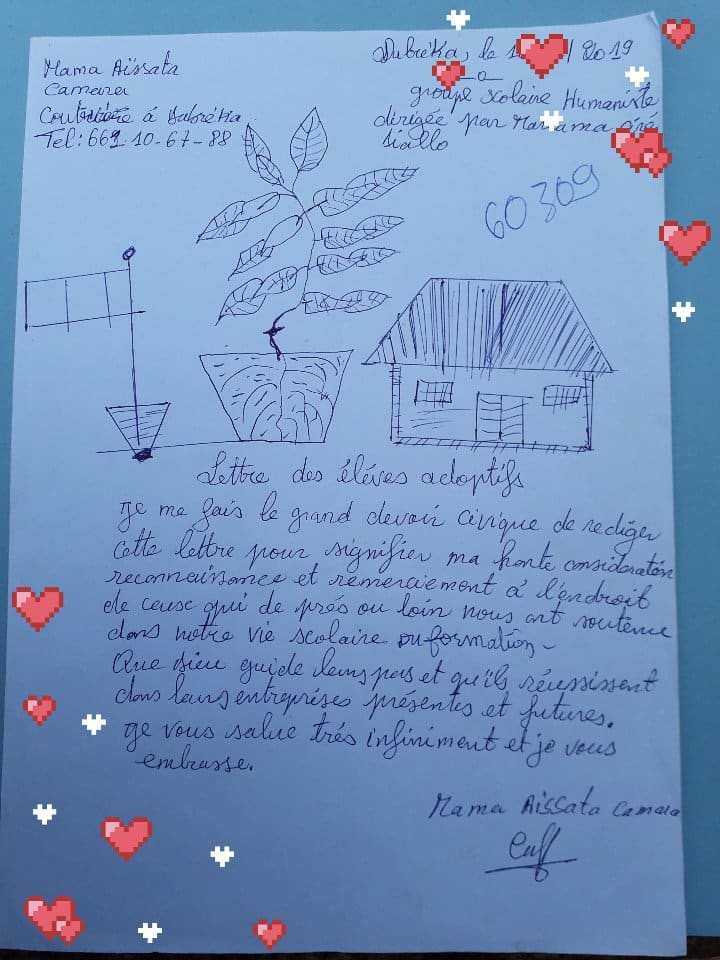 Mama Aïssata
Camara
Couturière à Dubréka
Tel: 661-10-67-88
Dubréka, le 1 / 2019
groupe scolaire Humaniste
dirigée par Mariama
Diallo
60309
Lettre des éléves adoptifs
Je me fais le grand devoir civique de rediger
cette lettre pour signifier ma honte consideration
reconnaissance et remerciement à l'endroit
de ceuse qui de prés ou loin nous ont soutenue
dans notre vie scolaire ou formation -
Que Dieu guide leurs pas et qu'ils réussissent
dans leurs entreprises présentes et futures.
Je vous salue trés infiniment et je vous
embrasse.
Mama Aissata Camara